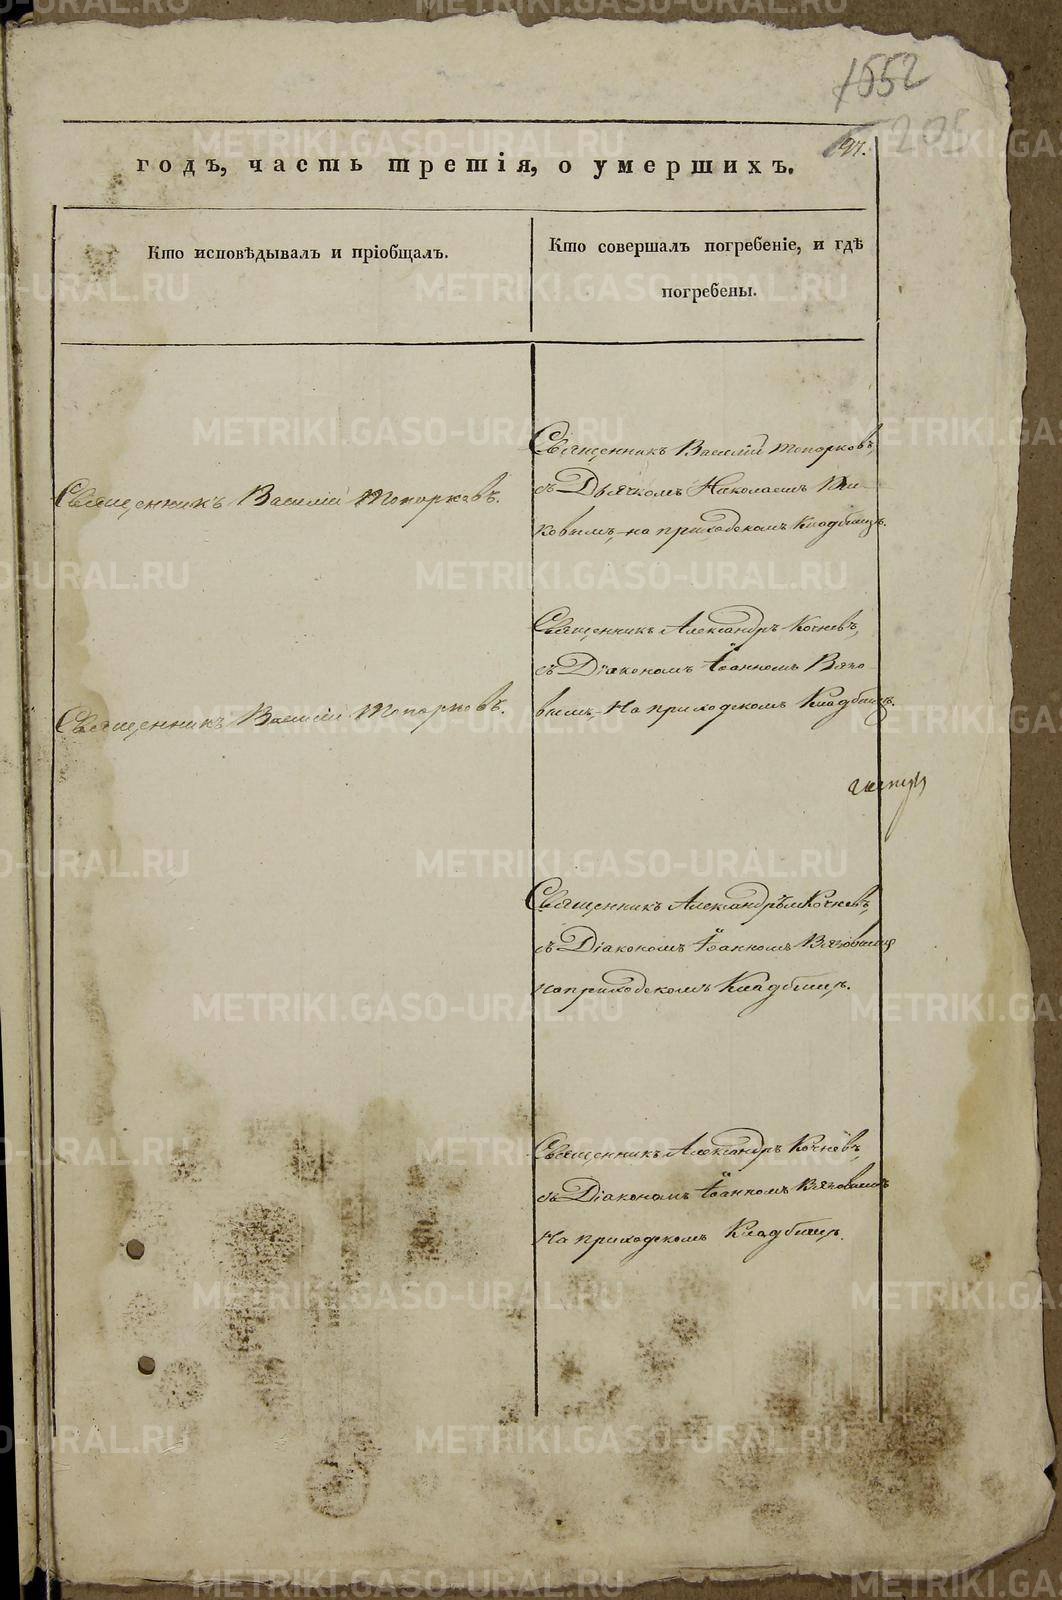 1552
205
97.
годъ, часть третія, о умершихъ.
Кто исповѣдывалъ и пріобщалъ.
Кто совершалъ погребеніе, и гдѣ
погребены.
Священникъ Василій Топорковъ,
Священникъ Василій Топорковъ.
съ Дьячкомъ Николаемъ
ковымъ, на приходскомъ Кладбищѣ.
Священникъ Александръ Кочневъ,
съ Діакономъ Іоанномъ Вязо
Священникъ Василій Топорковъ.
вымъ, На приходскомъ Кладбищѣ.
Священникъ Александръ Кочневъ,
съ Діакономъ Іоанномъ Вязовымъ
на приходскомъ Кладбищѣ.
Священникъ Александръ Кочневъ,
съ Діакономъ Іоанномъ Вязовымъ
На приходскомъ Кладбищѣ.
METRIKI.GASO-URAL.RU